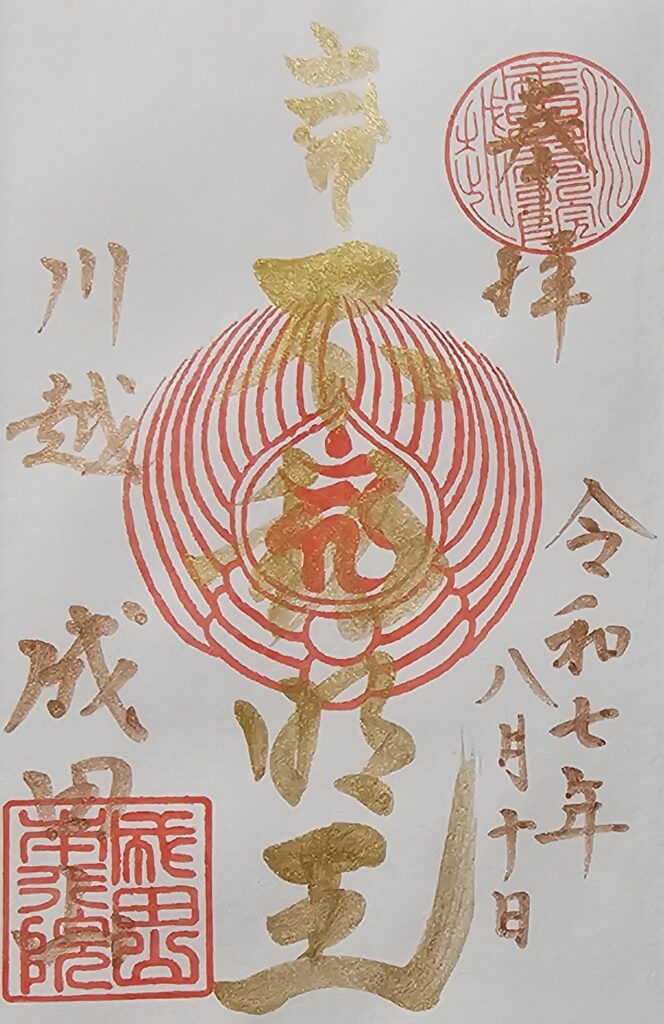 奉拝
令和七年
八月十日
不動明王
川越 成田山
成田山
本行院